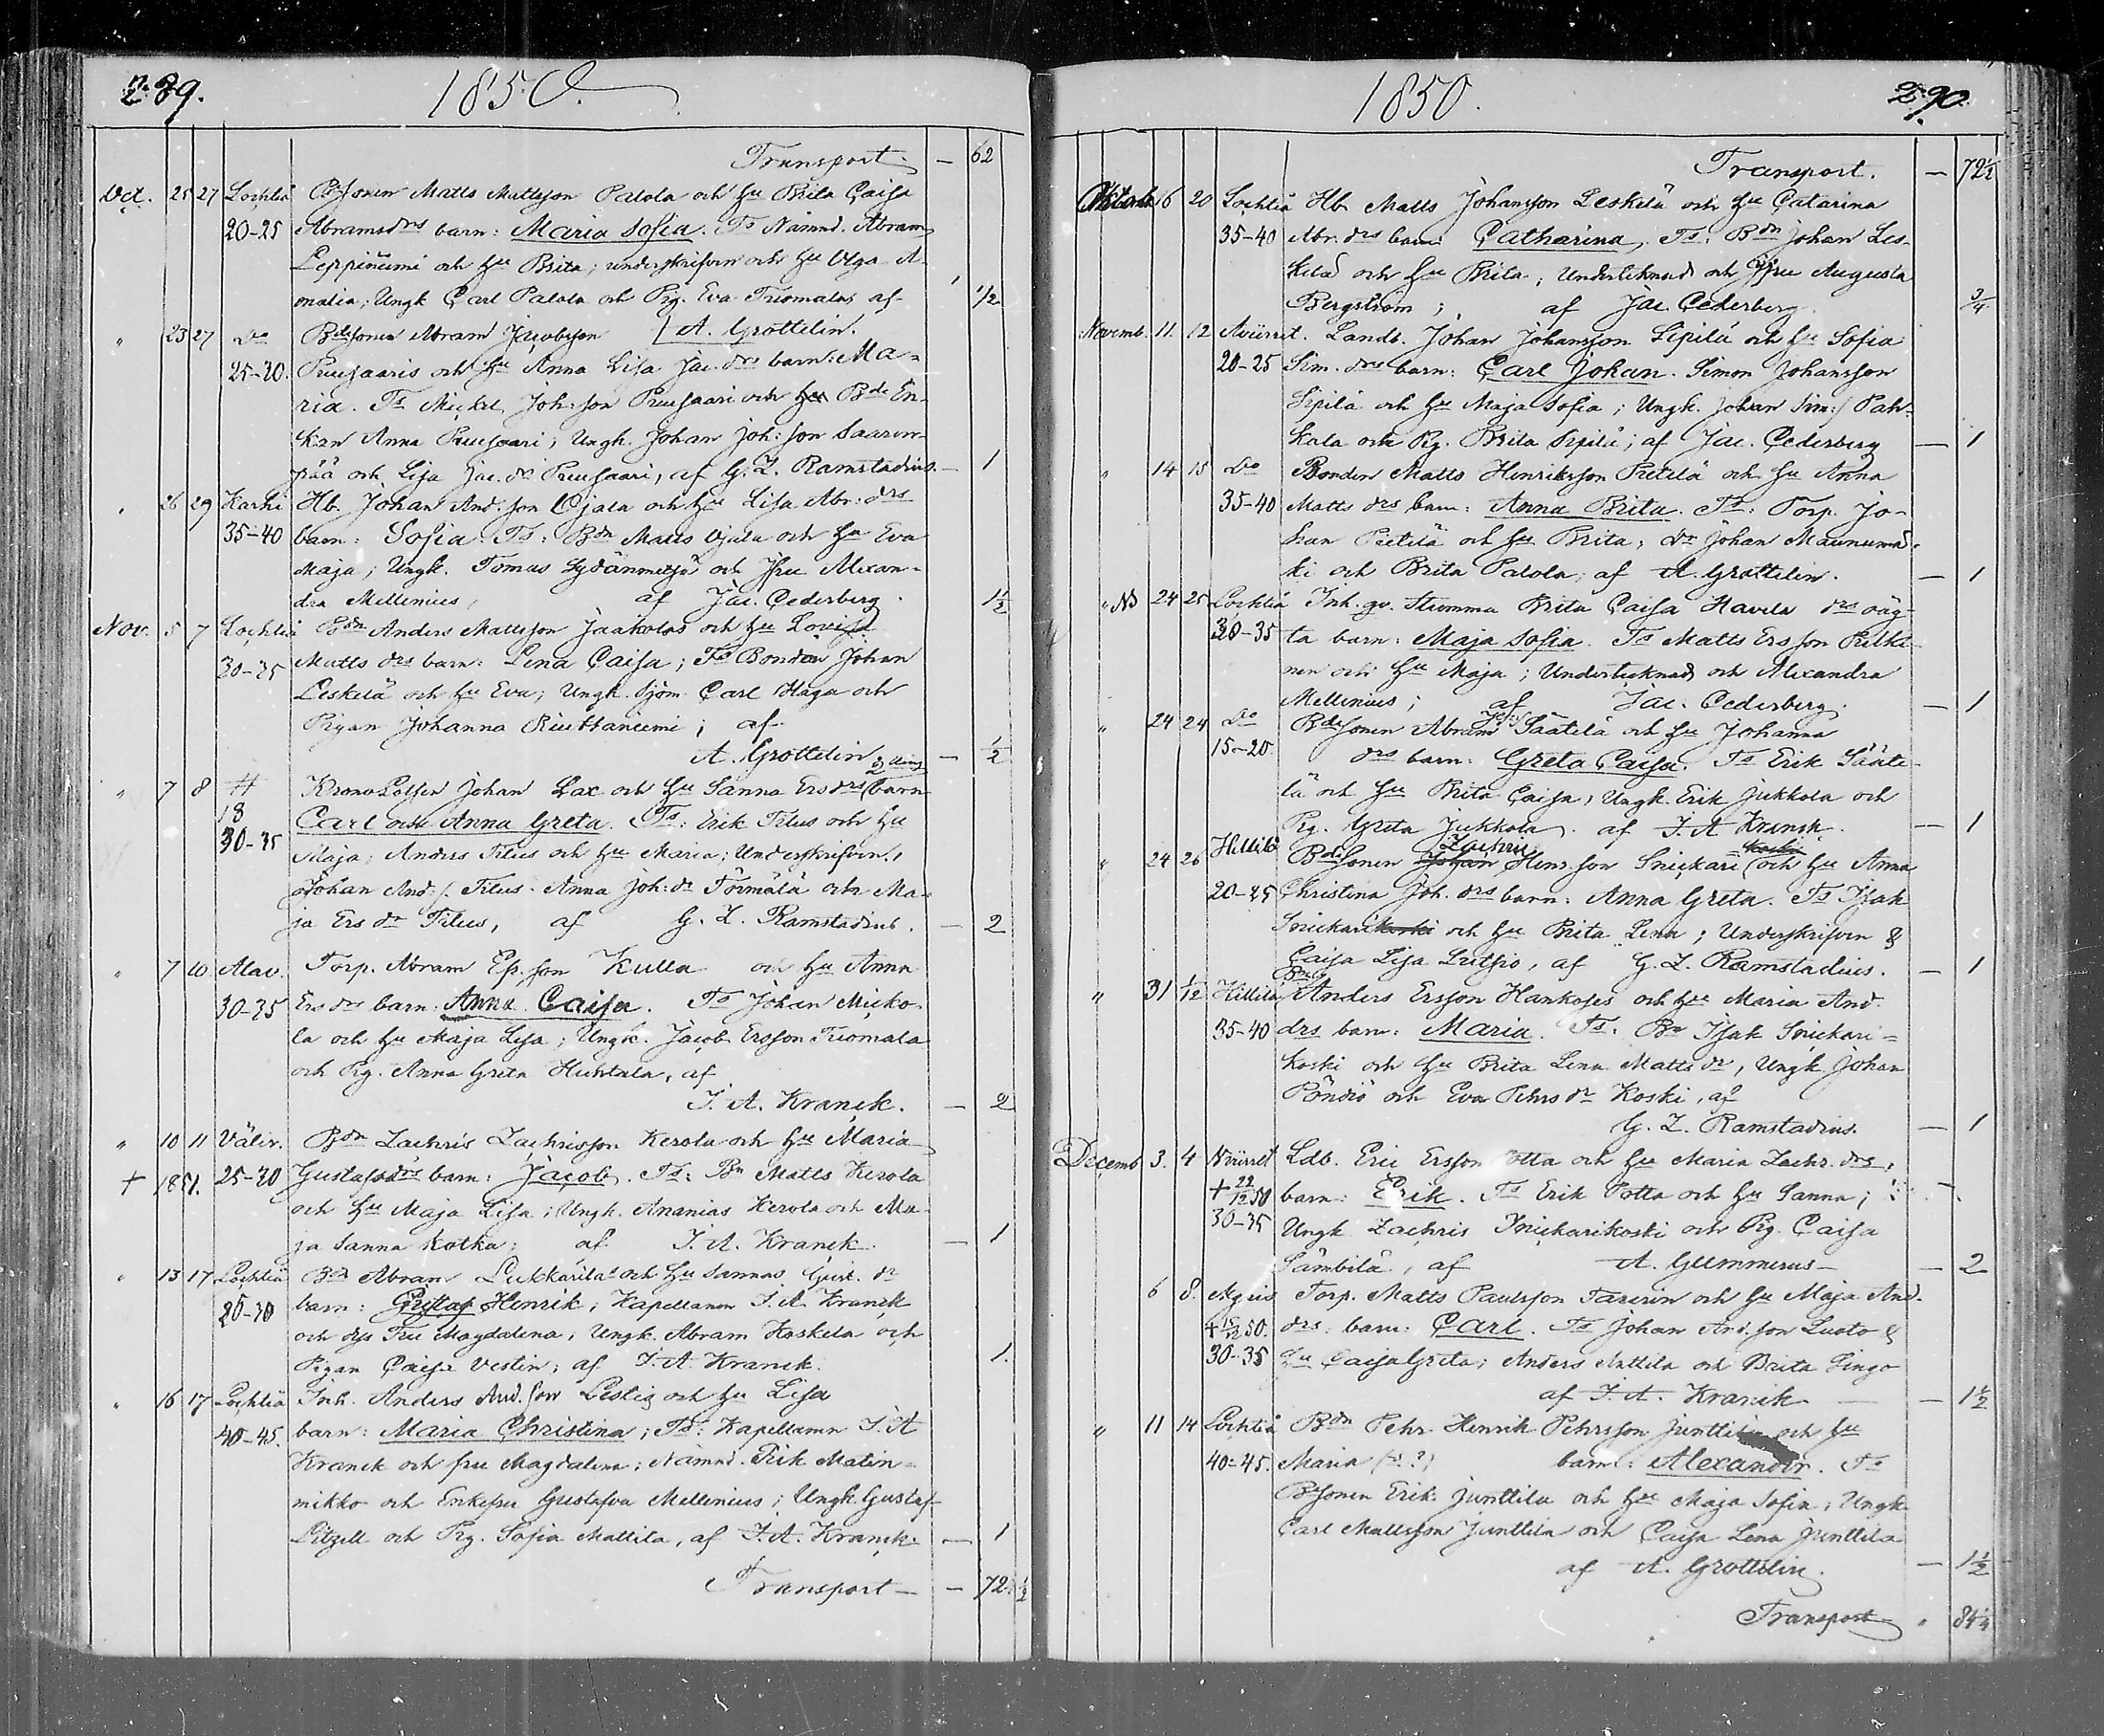 289.
1850.
Transport. — 62
Oct. 25 27 Lochteå Bdsonen Matts Mattsson Palola och hu Brita Caisa
20-25 Abramsdrs barn: Maria Sofia. Ts Nämnd. Abram
Leppiniemi och hu Brita; underskrifven och hu Olga A-
malia; Ungk Carl Palola och Pig. Eva Tuomala, af 1/2
" 23 27 Do Bdesonen Abram Jacobsson / A. Grottelin.
25-30. Puusaaris och hu Anna Lisa Jac. drs barn: Ma-
ria. Ts Mickel Joh: son Puusaari och Bde En-
kan Anna Puusaari; Ungk. Johan Joh: son Saaren-
pää och Lisa Jac. dr Puusaari, af G. Z. Ramstadius. — 1
" 26 29 Karhi Hb. Johan And: son Ojala och hu Lisa Abr: drs
35-40 barn: Sofia. Ts: Bdn Matts Ojala och hu Eva
Maja; Ungk. Tomas Sydänmetsä och Jfru Alexan-
dra Mellenius, af Jac. Cederberg. 1 1/2
Nov. 5 7 Lochteå Bdn Anders Mattsson Jaakolas och hu Lovisa
30-35 Matts drs barn: Lena Caisa; Ts Bonden Johan
Leskelä och hu Eva; Ungk. Sjöm. Carl Haga och
Pigan Johanna Riuttaniemi; af
A. Grottelin — 1/2
" 7 8 # Krono Lotsen Johan Lax och hu Sanna Ers drs barn
18 Carl och Anna Greta. Ts: Erik Filus och hu
30-35 Maja; Anders Filus och hu Maria; Underskrifven,
Johan And: s. Filus. Anna Joh: dr Törmälä och Ma-
ja Ers dr Filus, af G. Z. Ramstadius. — 2
" 7 10 Alav. Torp. Abram Es. son Kulla och hu Anna
30-35 Ers drs barn. Anna Caisa. Ts Johan Micko-
la och hu Maja Lisa; Ungk. Jacob Ersson Tuomala
och Pig. Anna Greta Huhtala, af
J. A. Kranck. — 2
" 10 11 Väliv. Bdn Zachris Zachrisson Kerola och hu Maria
+ 1851. 25-30 Gustafsdrs barn: Jacob. Ts: Bn Matts Kerola
och hu Maja Lisa; Ungk. Ananias Kerola och Ma-
ja Sanna Kotka; af J. A. Kranck. — 1
" 13 17 Lochteå Bdn Abram Lukkarilas och hu Sannas Gust. dr
25-30 barn: Gustaf Henrik; Kapellanen J. A. Kranck
och dess Fru Magdalena; Ungk. Abram Koskela och
Pigan Caisa Vestin; af J. A. Kranck. 1.
" 16 17 Lochteå Inh. Anders And. son Leslig och hu Lisa
40-45. barn: Maria Christina; Ts: Kapellanen J. A
Kranck och fru Magdalena; Nämnd. Erik Matin-
mikko och Enkefru Gustafva Mellenius; Ungk. Gustaf
Litzell och Pig. Sofia Mattila, af J. A. Kranck. — 1
Transport — — 72 1/2
1850.
290.
Transport. — 72 1/2
16 20 Lochteå Hb. Matts Johansson Leskelä och hu Catarina
35-40 Abr. drs barn: Catharina. Ts: Bdn Johan Les-
kelä och hu Brita; Undertecknad och Jfru Augusta
Bergström; af Jac. Cederberg. 3/4
Novemb. 11. 12 Aviirret. Landb. Johan Johansson Sipilä och hu Sofia
20-25 Sim. drs barn: Carl Johan. Simon Johansson
Sipilä och hu Maja Sofia; Ungk. Johan Sim: s Pah-
kala och Pig. Brita Sipilä; af Jac. Cederberg — 1
" 14 15 Do Bonden Matts Henriksson Pietilä och hu Anna
35-40 Matts drs barn: Anna Brita. Ts: Torp. Jo-
han Pietilä och hu Brita, dr Johan Maunumä-
ki och Brita Palola; af A. Grottelin. — 1
" Nb 24 25 Lochteå Inh. qv. Stumma Brita Caisa Havela drs oäg-
30-35 ta barn: Maja Sofia. Ts Matts Ersson Pitkä-
nen och hu Maja; Undertecknad och Alexandra
Mellenius; af Jac. Cederberg. — 1
" 24 24 Do Bdesonen Abram Säätelä och hu Johanna
15-20. drs barn: Greta Caisa. Ts Erik Sääte-
lä och hu Brita Caisa; Ungk. Erik Jukkola och
Pig. Greta Jukkola. af J. A Kranck. — 1
" 24 26 Hillilä Bdesonen Johan Zachris Henr. son Snickari koski och hu Anna
20-25 Christina Joh. drs barn: Anna Greta. Ts Isak
Snickarikoski och hu Brita Lena; Underskrifven &
Caisa Lisa, af G. Z. Ramstadius. — 1
" 31 1/12 Hillilä Bn Anders Ersson Hankoses och hu Maria And.
35-40 drs. barn: Maria. Ts: Bn Isak Snickari-
koski och hu Brita Lena Matts dr, Ungk. Johan
Pöndiö och Eva Pehrs dr Koski, af
G. Z. Ramstadius. — 1
Decemb 3. 4 Aviirret Ldb. Eric Ersson Potta och hu Maria Zachr. drs,
+ 22/12 50 barn: Erik. Ts Erik Potta och hu Sanna;
30-35 Ungk. Zachris Snickarikoski och Pig. Caisa
Sämbilä, af A. Gummerus — — 2
6 8. Torp. Matts Paulsson Taverin och hu Maja And.
+ 15/12 50. drs: barn: Carl. Ts Johan And. son Luoto &
30-35 hu Caisa Greta; Anders Anttila och Brita Pingo
af J. A. Kranck — 1 1/2
" 11 14 Lochteå Bdn Pehr Henrik Pehrsson Junttila och hu
40-45. Maria (?) barn: Alexander. Ts
Bsonen Erik Junttila och hu Maja Sofia; Ungk.
Carl Mattsson Junttila och Caisa Lena Junttila
af A. Grottelin. — 1 1/2
Transport " 84 1/4